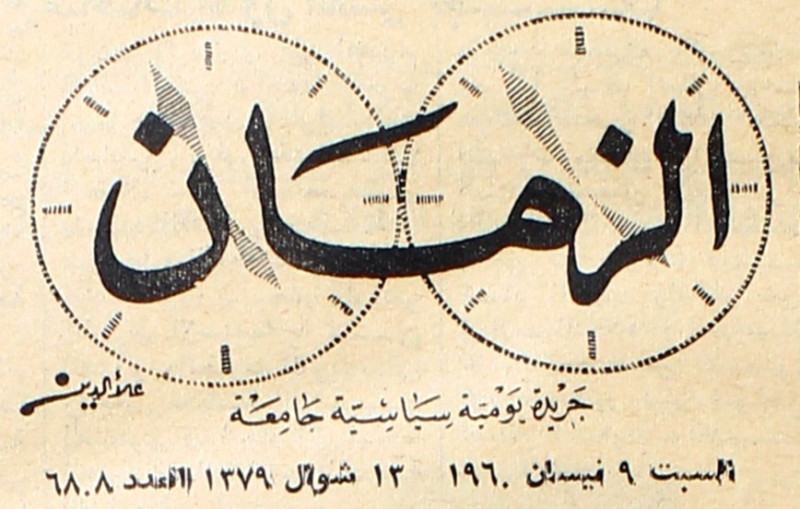 الزمان
علاءالدين
جَريْدة يَوْميّة سيَاسيّة جَامِعَة
السبت ٩ نيسان ١٩٦٠ ١٣ شوال ١٣٧٩ العدد ٦٨٠٨